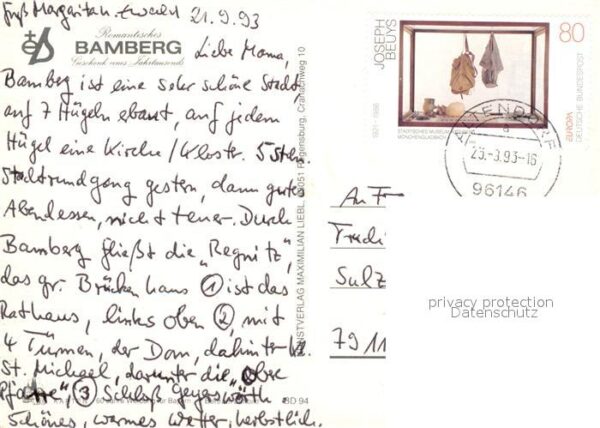 Gruß Margaritah Ewald 21.9.93
Romantisches
BAMBERG
Geschenk eines Jahrtausends
Liebe Mama,
Bamberg ist eine sehr schöne Stadt,
auf 7 Hügeln ebaut, auf jedem
Hügel eine Kirche/Klostr. 5 Stdn
Stadtrundgang gestern, dann gute
Abendessen, nicht teuer. Durch
Bamberg fließt die „Regnitz",
das gr. Brückenhaus ① ist das
Rathaus, links oben ② mit
4 Türmen, der Dom, dahinter
St. Michael, darunter die „Obere
Pfarre" ③ Schloß Geyerswörth
Schönes, warmes Wetter, herbstlich.
KUNSTVERLAG MAXIMILIAN LIEBL, 93051 Regensburg, Cranachweg 10
BD 94
JOSEPH
BEUYS
1921 - 1986
80
DEUTSCHE BUNDESPOST
EUROPA
STÄDTISCHES MUSEUM
MÖNCHENGLADBACH
23.-3.93-16
96146
An Fr
Fredi
Sulz
79 11
privacy protection
Datenschutz